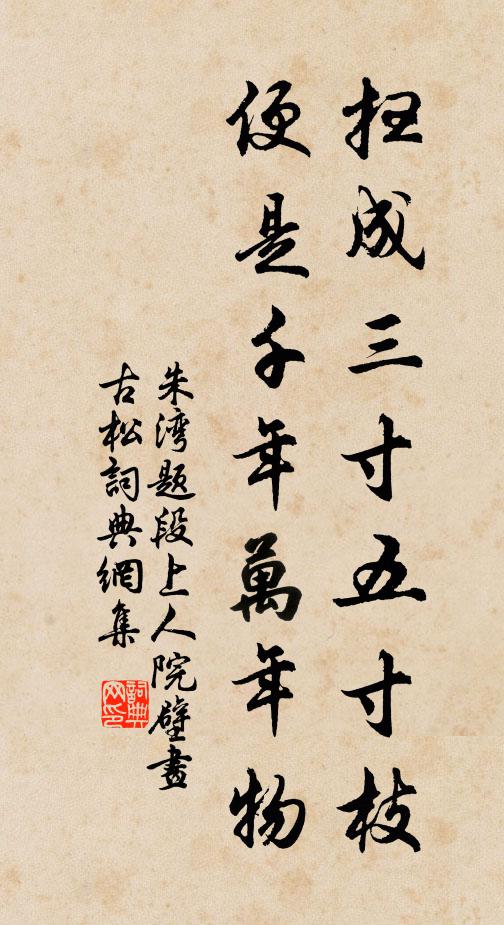 扫成三寸五寸枝
便是千年萬年物
朱湾题段上人院壁畫
古松詞典網集
詞典
网印